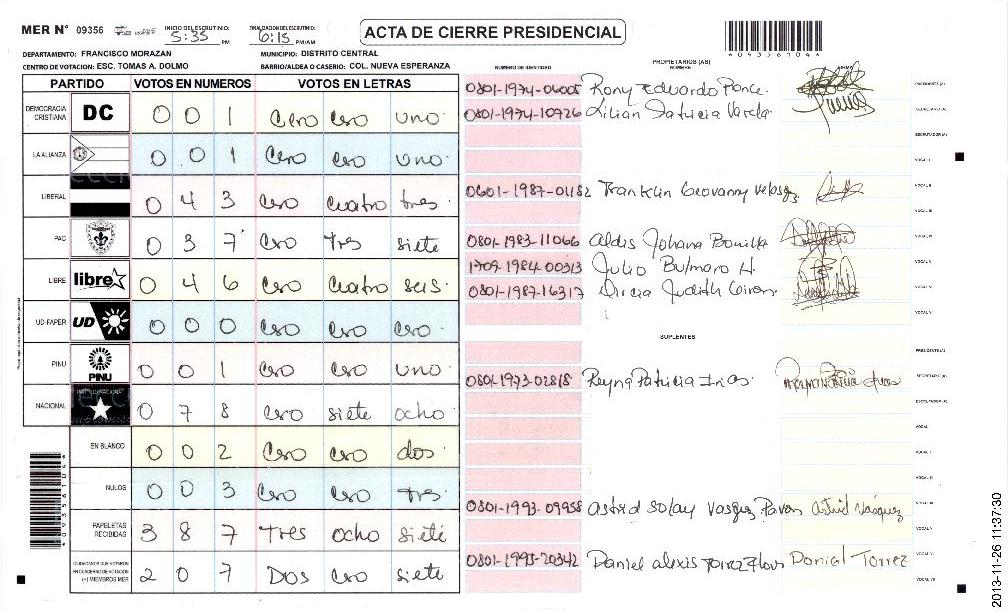 MER N° 09356
INICIO DEL ESCRUTINIO: 5:35 PM
FINALIZACION DEL ESCRUTINIO: 6:15 PM/AM
ACTA DE CIERRE PRESIDENCIAL
DEPARTAMENTO: FRANCISCO MORAZAN
MUNICIPIO: DISTRITO CENTRAL
CENTRO DE VOTACION: ESC. TOMAS A. DOLMO
BARRIO/ALDEA O CASERIO: COL. NUEVA ESPERANZA
PARTIDO VOTOS EN NUMEROS VOTOS EN LETRAS
DEMOCRACIA CRISTIANA DC 0 0 1 Cero cero uno.
LA ALIANZA 0 0 1 Cero cero uno.
LIBERAL 0 4 3 Cero cuatro tres.
PAC 0 3 7 Cero tres siete
LIBRE libre 0 4 6 Cero cuatro seis.
UD-FAPER UD 0 0 0 Cero cero cero.
PINU PINU 0 0 1 Cero cero uno.
NACIONAL 0 7 8 Cero siete ocho.
EN BLANCO 0 0 2 Cero cero dos.
NULOS 0 0 3 Cero cero tres.
PAPELETAS RECIBIDAS 3 8 7 Tres ocho siete
CIUDADANOS QUE VOTARON EN CUADERNO DE VOTACION (+) MIEMBROS MER 2 0 7 DOS cero siete
NUMERO DE IDENTIDAD
PROPIETARIOS (AS)
NOMBRE
0801-1974-06005 Rony Eduardo Ponce. PRESIDENTE (A)
0801-1974-10726 Lilian Patricia Varela SECRETARIO (A)
ESCRUTADOR (A)
VOCAL I
0601-1987-01182 Franklin Geovanny Velasqz VOCAL II
VOCAL III
0801-1983-11066 Aldis Johana Bonilla VOCAL IV
1709-1984-00313 Julio Bulmaro H. VOCAL V
0801-1987-16317 Dircia Judith VOCAL VI
SUPLENTES
PRESIDENTE (A)
0801-1973-02818 Reyna Patricia SECRETARIO (A)
ESCRUTADOR (A)
VOCAL I
0801-1993-09958 Astrid Solay Vasqez Pavon Astrid Vásquez
VOCAL V
0801-1993-20342 Daniel alexis Torrez Flores Daniel Torrez
VOCAL VII
2013-11-26 11:37:30